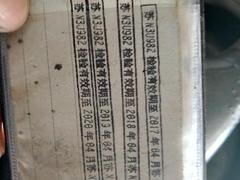 苏N3J982 检验有效期至2017年04月苏
苏N3J982 检验有效期至2018年04月苏
苏N3J982 检验有效期至2019年04月苏
苏N3J982 检验有效期至2020年04月苏